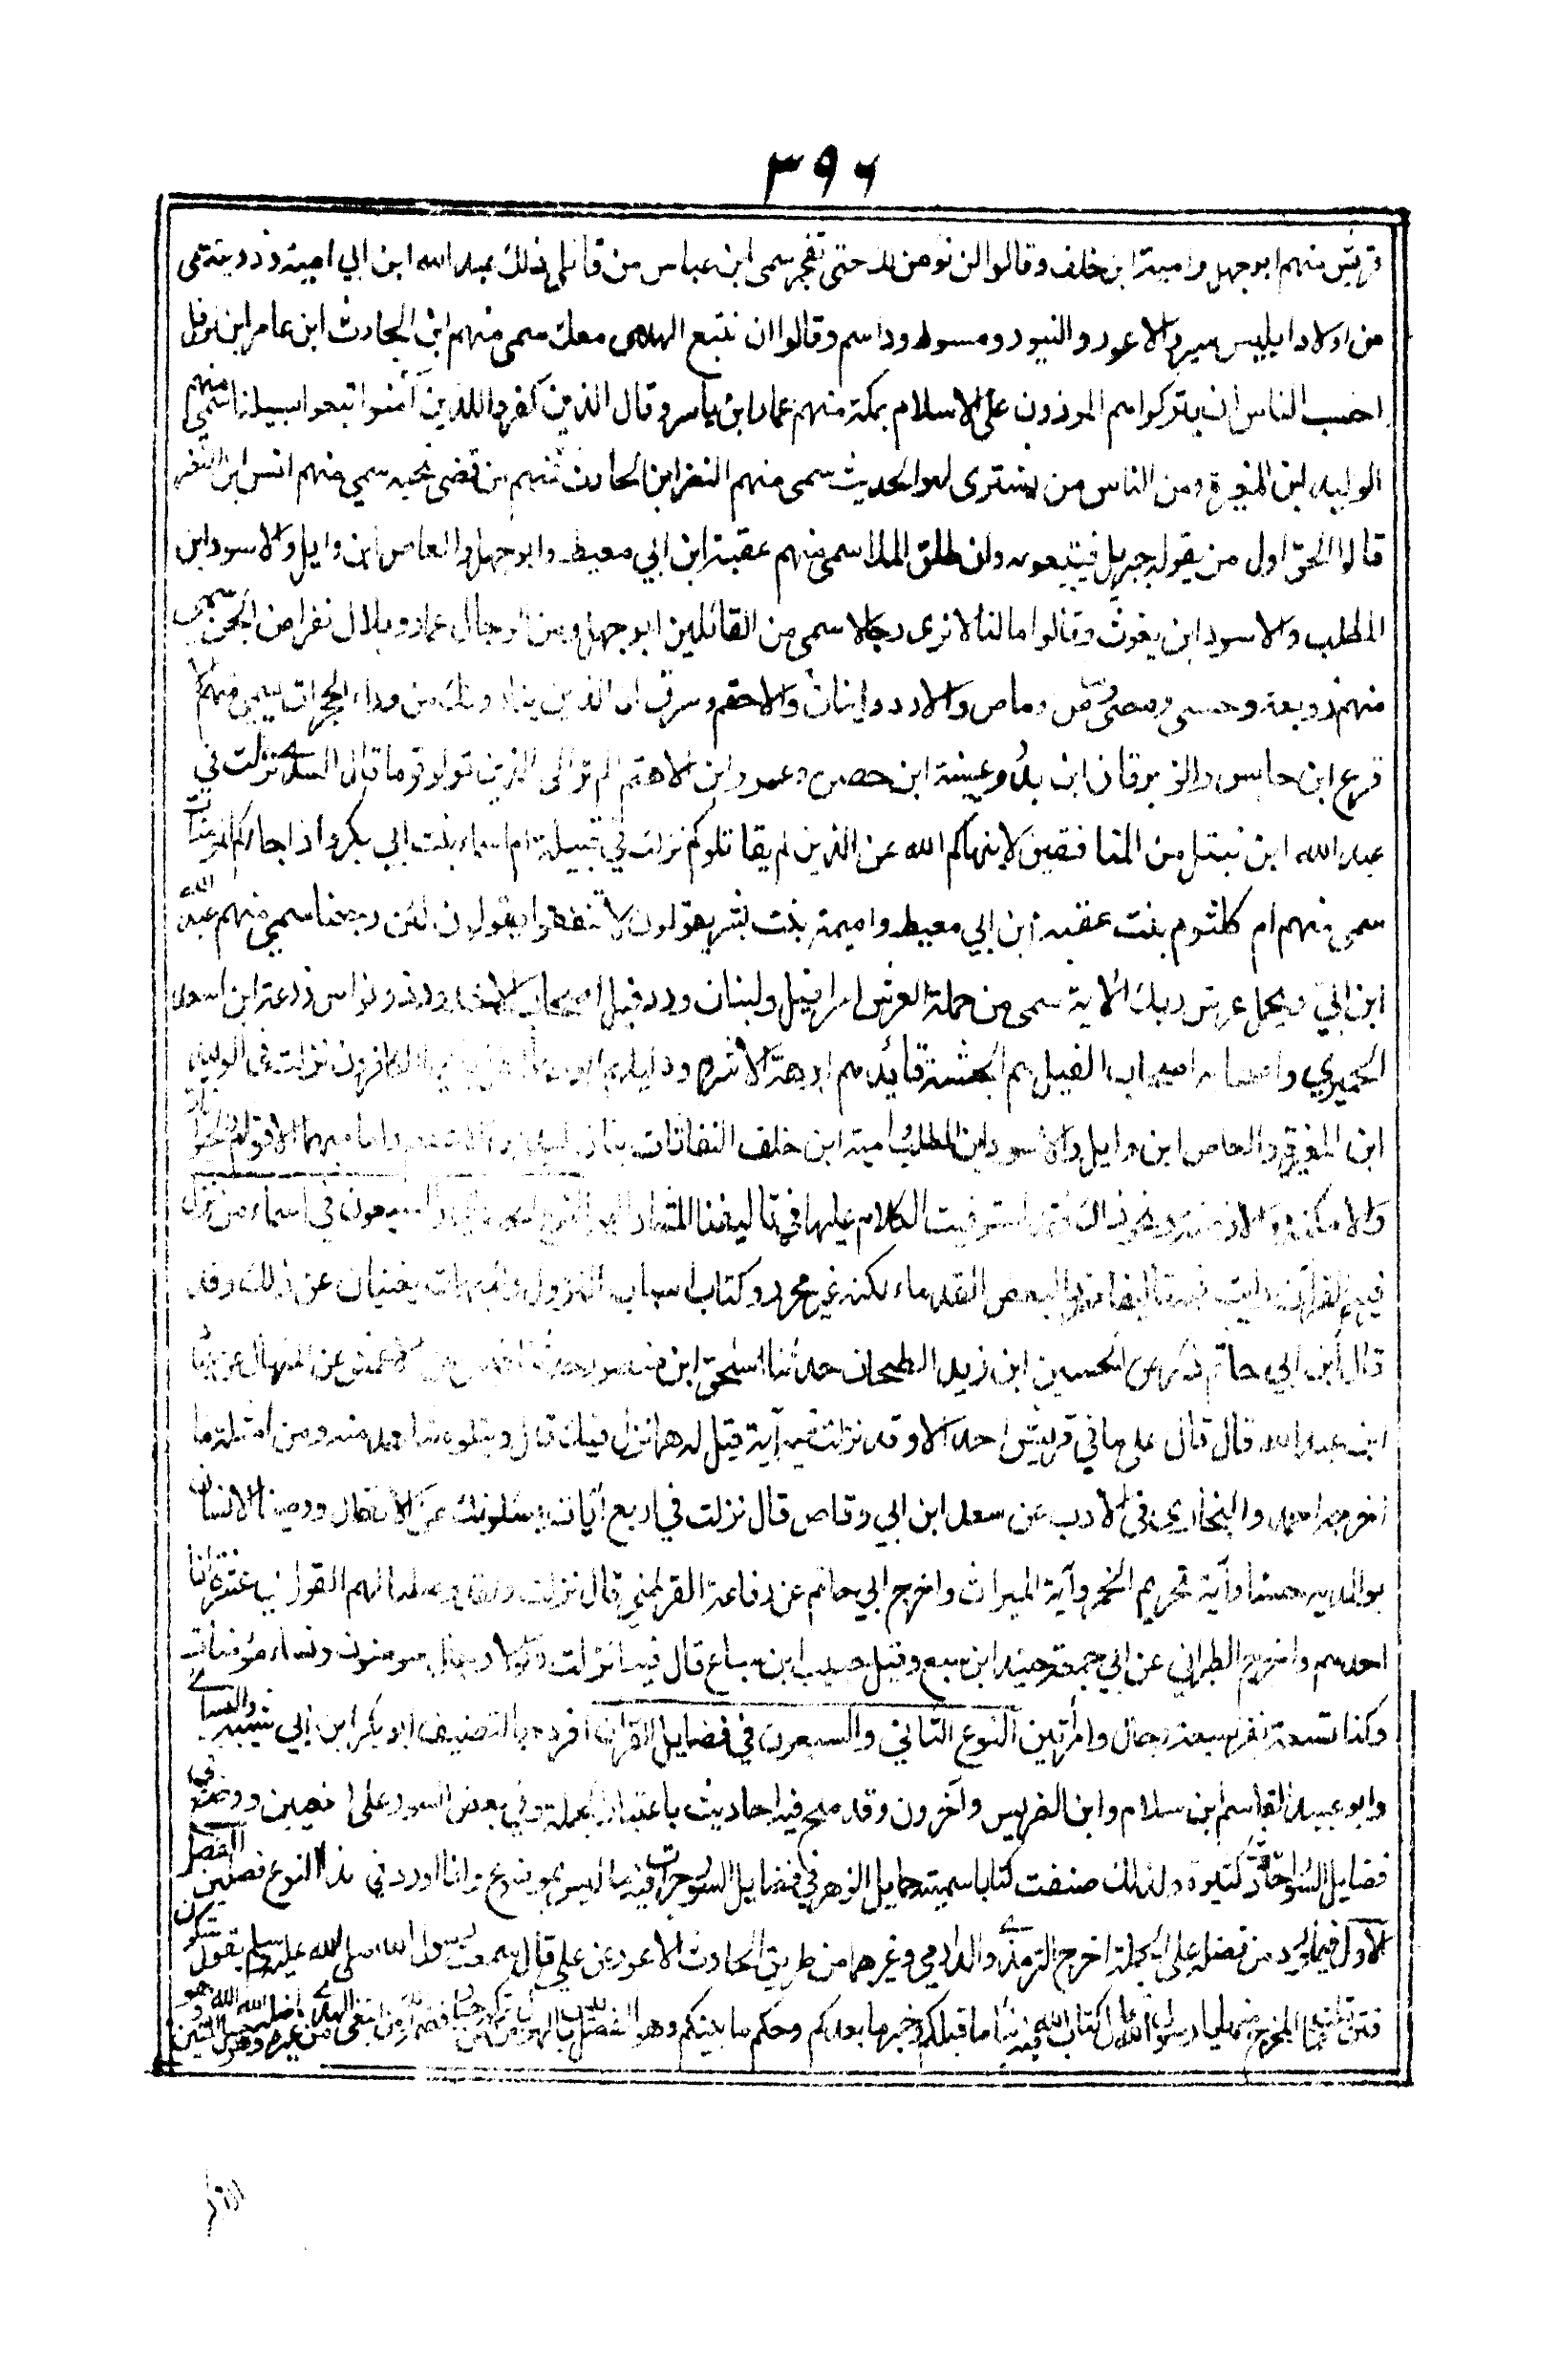 ٣٩٦
قريش منهم ابو جهل وامية ابن خلف وقالوا لن نومن لك حتى تفجر سمى ابن عباس من قائلى ذلك عبد الله ابن ابي امية وذريته سمى
من اولاد ابليس والاعور ومسوط وداسم وقالوا ان نتبع الهدى معك سمى منهم ابن الحارث ابن عامر ابن نوفل
احسب الناس ان يتركوا هم الموذون على الاسلام بمكة منهم عمار ابن ياسر وقال الذين كفروا للذين آمنوا اتبعوا سبيلنا سمى منهم
الوليد ابن المغيرة ومن الناس من يشترى لهو الحديث سمى منهم النضر ابن الحارث فمنهم من قضى نحبه سمي منهم انس ابن النضر
قالوا الحق اول من يقوله جبريل فيتبعونه وانطلق الملا سمى منهم عقبة ابن ابي معيط وابو جهل والعاص ابن وايل والاسود ابن
المطلب والاسود ابن يغوث وقالوا ما لنا لا نرى رجالا سمى من القائلين ابو جهل ومن الرجال عمار وبلال نفرا من الجن سمى
منهم زوبعة وحسى ومسى والاحقم وسرق ان الذين ينادونك من وراء الحجرات سمى منهم الا
قرع ابن حابس والزبرقان ابن بدر وعيينة ابن حصن وعمرو ابن الاهتم الم تر الى الذين تولوا قوما قال السدے نزلت في
عبد الله ابن نبتل من المنافقين لا ينهاكم الله عن الذين لم يقاتلوكم نزلت في قتيلة ام اسماء بنت ابي بكر واذا جاءكم المؤمنات
سمى منهم ام كلثوم بنت عقبة ابن ابي معيط واميمة بنت بشر يقولون لا تنفقوا يقولون لئن رجعنا سمي منهم عبد الله
ابن ابي ويحمل عرش ربك الآية سمى من حملة العرش اسرافيل ولبنان وروفيل اصحاب الاخدود ذو نواس زرعة ابن اسعد
الحميري واصحابه اصحاب الفيل هم الحبشة قائدهم ابرهة الاشرم ودليلهم الكافرون نزلت في الوليد
ابن المغيرة والعاص ابن وايل والاسود ابن المطلب وامية ابن خلف النفاثات بنات لبيد واما مبهمات الاقوام والحيوانات
والامكنة والازمنة ونحو ذلك فقد استوفيت الكلام عليها في تاليفنا المشار اليه النوع الحادي والسبعون في اسماء من نزل
فيهم القرآن رايت فيه تاليفا مفردا لبعض القدماء لكنه غير محرر وكتاب اسباب النزول والمبهمات يغنيان عن ذلك وقد
قال ابن ابي حاتم ذكر عن الحسين ابن زيد الطحان حدثنا اسحق ابن منصور حدثنا عن الاعمش عن المنهال عن عباد
ابن عبد الله قال قال علي ما في قريش احد الا وقد نزلت فيه آية قيل له فما نزل فيك قال ويتلوه شاهد منه ومن امثلته ما
اخرجه احمد والبخاري في الادب عن سعد ابن ابي وقاص قال نزلت في اربع آيات يسئلونك عن الانفال ووصينا الانسان
بوالديه حسنا وآية تحريم الخمر وآية الميراث واخرج ابي حاتم عن رفاعة القرظي قال نزلت ولقد وصلنا لهم القول في عشرة انا
احدهم واخرج الطبراني عن ابي جمعة جنيد ابن سبع وقيل حبيب ابن سباع قال فينا نزلت ولولا رجال مومنون ونساء مؤمنات
وكنا تسعة نفر سبعة رجال وامرأتين النوع الثاني والسبعون في فضايل القرآن افرده بالتصنيف ابو بكر ابن ابي شيبة والنساے
وابو عبيد القاسم ابن سلام وابن الضريس وآخرون وقد صح فيه احاديث باعتبار الجملة وفي بعض السور على التعيين ووضع في
فضايل القرآن احاديث كثيرة ولذلك صنفت كتابا سميته حمايل الزهر في فضايل السور حررت فيه ما ليس بموضوع وانا اورد في هذا النوع فصلين الفصل
الاول فيما ورد من فضله على الجملة اخرج الترمذے والدارمي وغيرهما من طريق الحارث الاعور عن علي قال سمعت رسول الله صلى الله عليه وسلم يقول ستكون
فتن قلت فما المخرج منها يا رسول الله قال كتاب الله فيه نبأ ما قبلكم وخبر ما بعدكم وحكم ما بينكم وهو الفصل ليس بالهزل من تركه من جبار قصمه الله ومن ابتغى الهدے من غيره اضله الله وهو حبل الله المتين